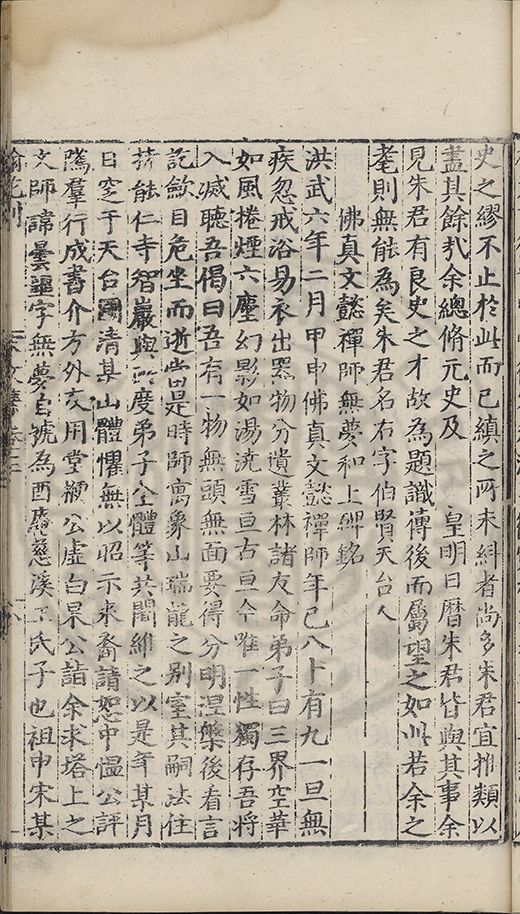 史之繆不止於此而已縝之所未糾者尚多朱君宜推類以
盡其餘哉余總脩元史及　皇明日曆朱君皆與其事余
見朱君有良史之才故為題識傳後而屬望之如此若余之
耄則無能為矣朱君名右字伯賢天台人
佛真文懿禪師無夢和上碑銘
洪武六年二月甲申佛真文懿禪師年已八十有九一旦無
疾忽戒浴易衣出器物分遺叢林諸友命弟子曰三界空華
如風捲煙六塵幻影如湯沃雪亘古亘今唯一性獨存吾將
入滅聽吾偈曰吾有一物無頭無面要得分明涅槃後看言
訖斂目危坐而逝當是時師寓象山瑞龍之别室其嗣法住
持能仁寺智巖與所度弟子全體等共闍維之以是年某月
日窆于天台國清某山體懼無以昭示来裔請恕中愠公評
隲羣行成書介方外友用堂楩公虛白杲公詣余求塔上之
文師諱曇噩字無夢自號為酉菴慈溪王氏子也祖申宋某